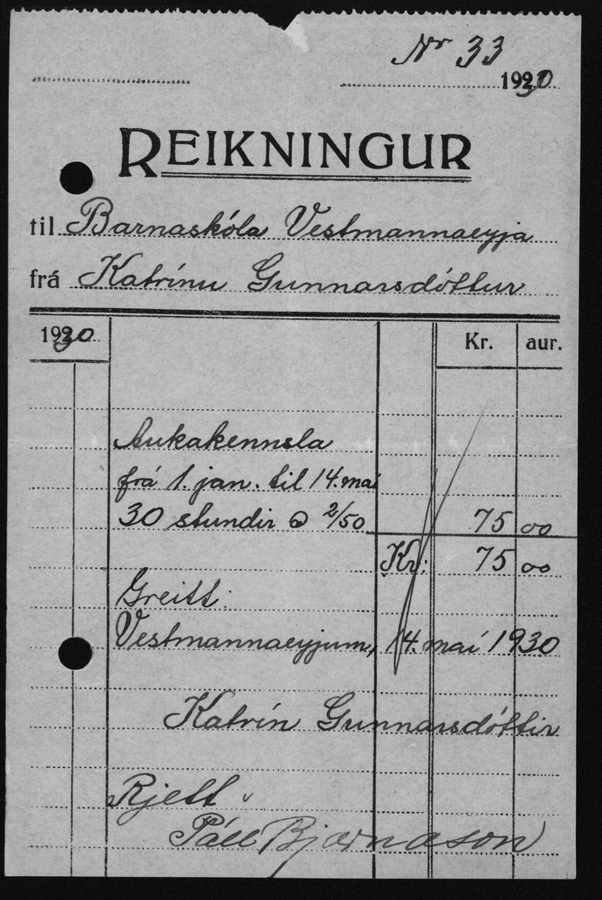 Nr 33
1930
REIKNINGUR
til Barnaskóla Vestmannaeyja
frá Katrínu Gunnarsdóttur
1930 Kr. aur.
Aukakennsla
frá 1. jan. til 14. maí
30 stundir @ 2/50 75 00
Kr: 75 00
Greitt.
Vestmannaeyjum, 14. maí 1930
Katrín Gunnarsdóttir
Rjett
Páll Bjarnason